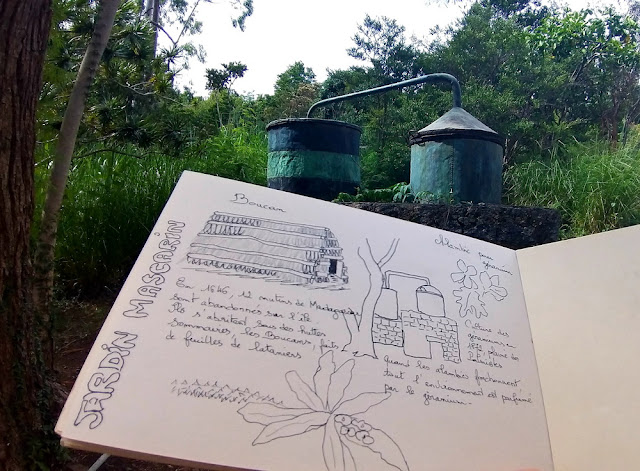 JARDIN MASCARIN
Boucan
En 1646, 12 mutins de Madagascar
sont abandonnés sur l'île.
Ils s'abritent sous des huttes
sommaires, les Boucans, faits
de feuilles de lataniers
Alambic pour
géranium
Culture des
géraniums en
Quand les alambics fonctionnent,
tout l'environnement est parfumé
par le géranium.